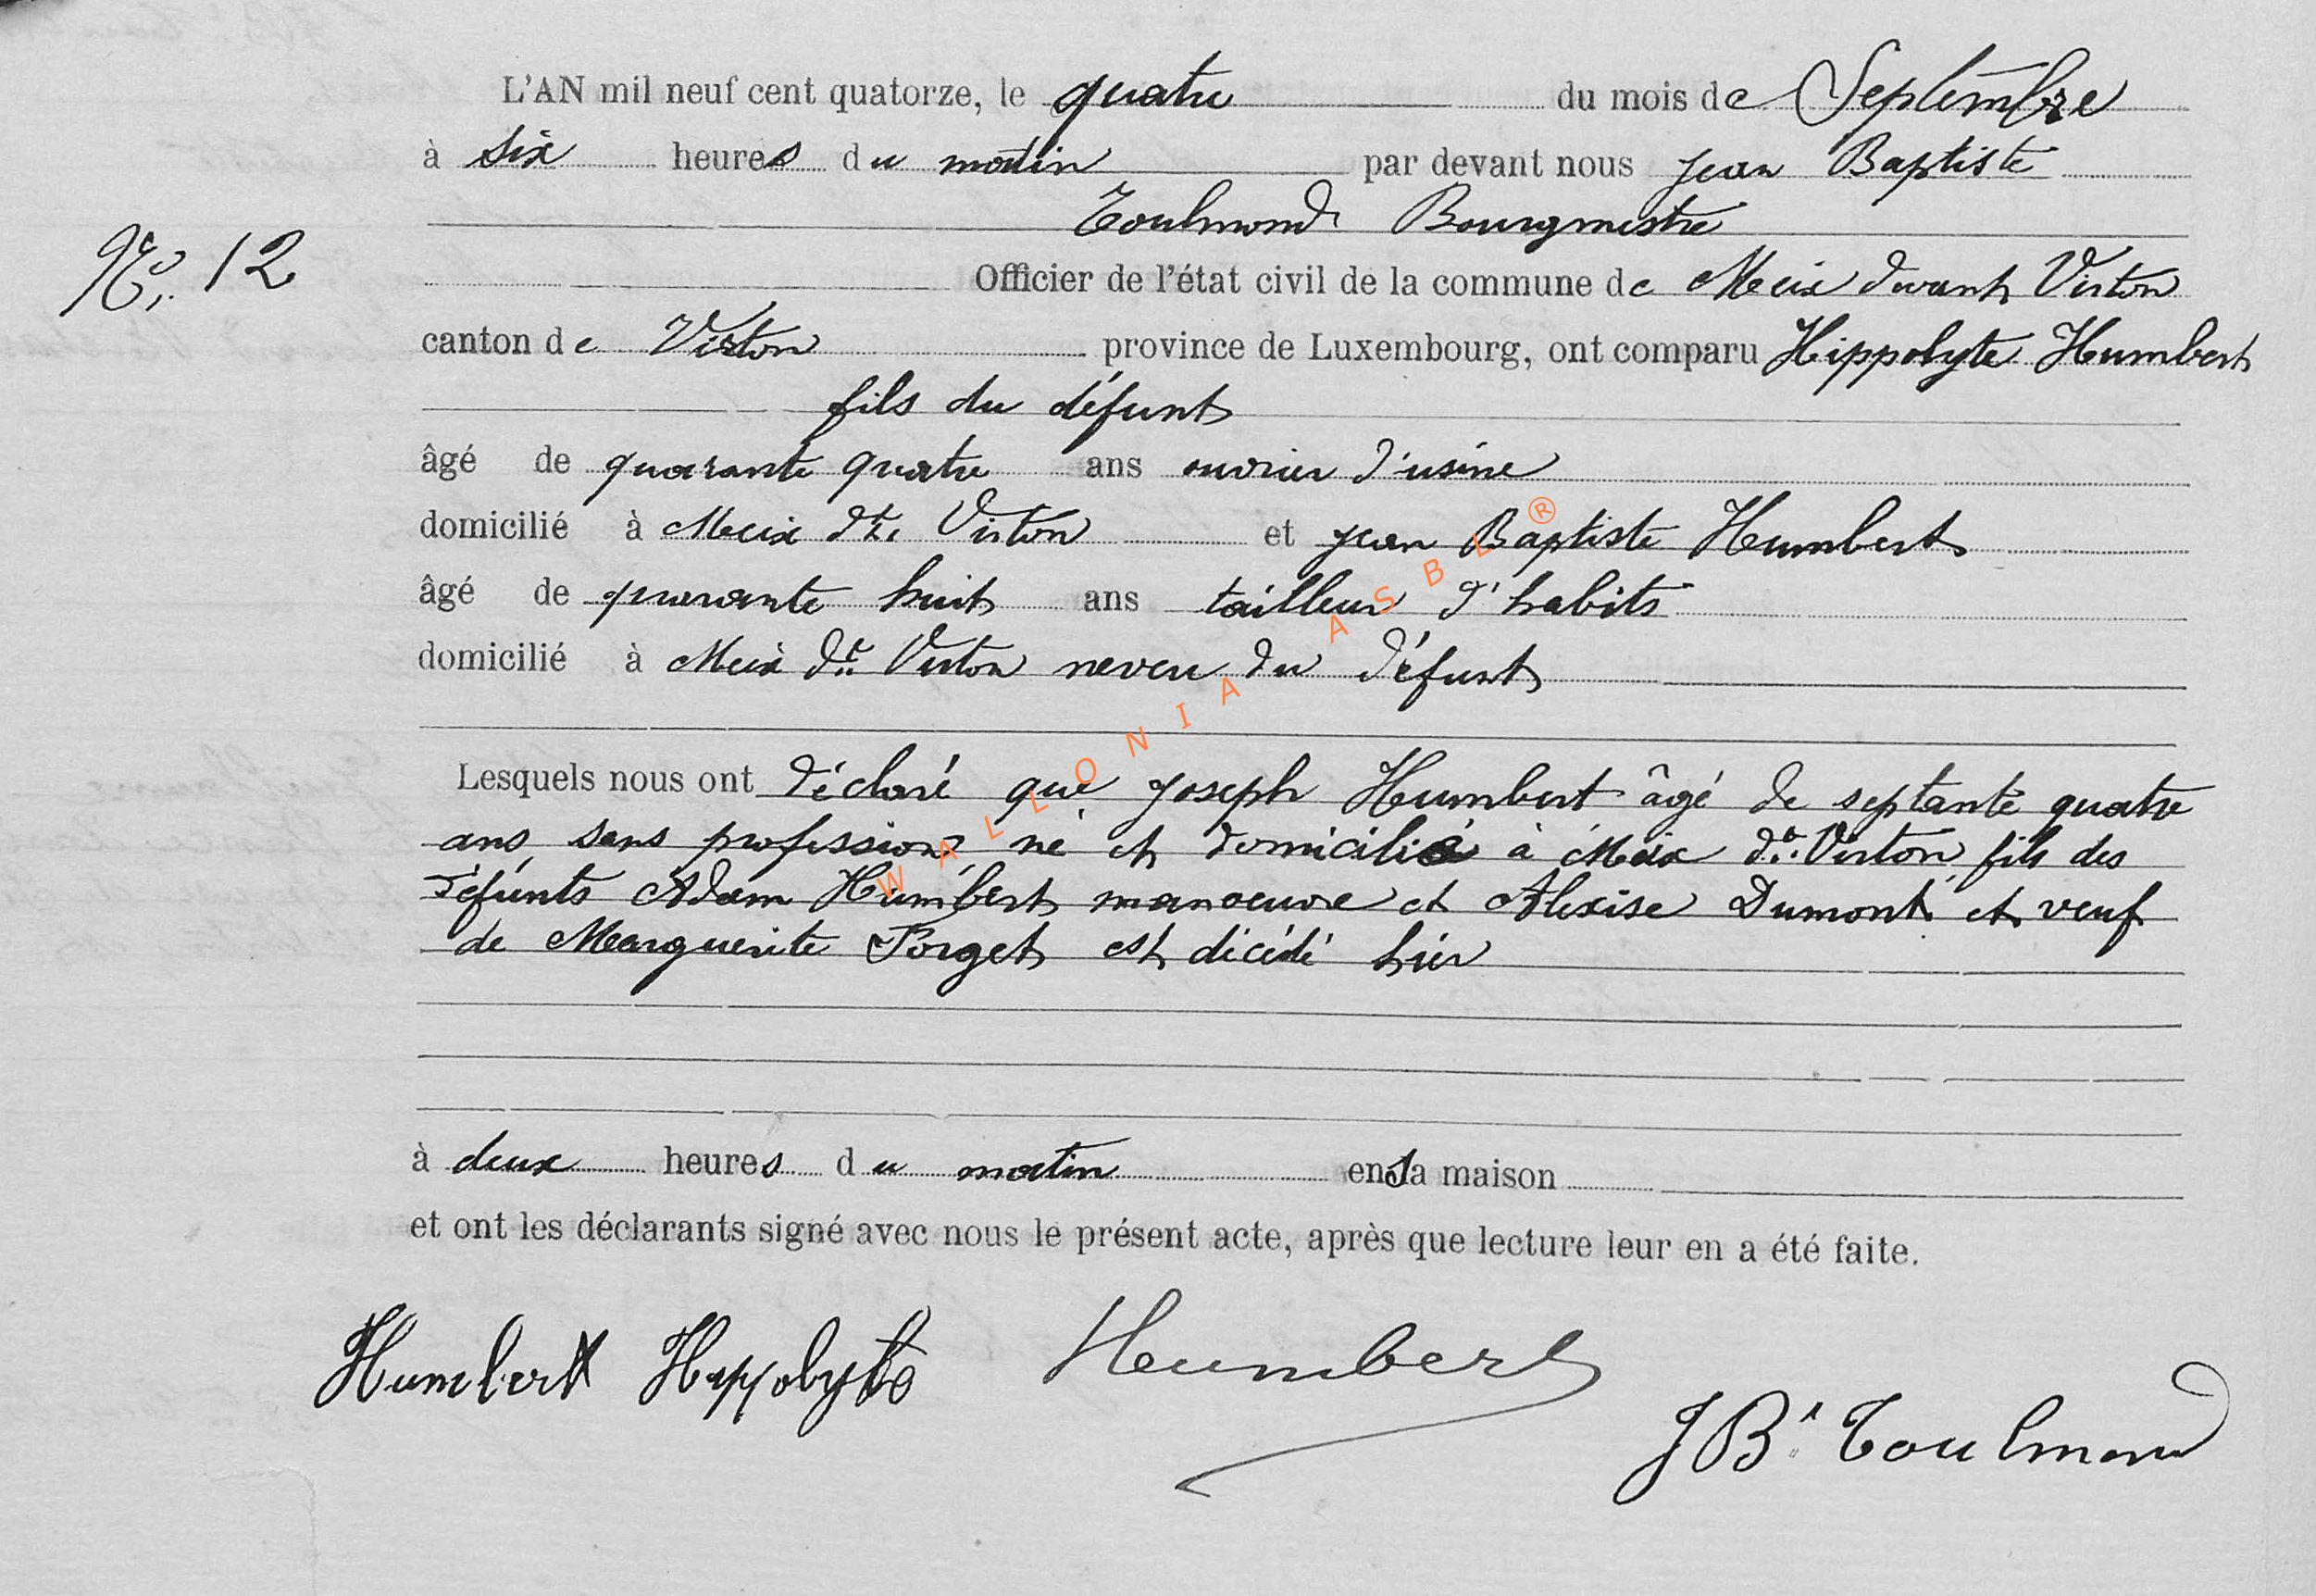 L'AN mil neuf cent quatorze, le quatre du mois de Septembre
à six heures du matin par devant nous Jean Baptiste
Toulmond Bourgmestre
N° 12
Officier de l'état civil de la commune de Meix devant Virton
canton de Virton province de Luxembourg, ont comparu Hippolyte Humbert
fils du défunt
âgé de quarante quatre ans ouvrier d'usine
domicilié à Meix dt. Virton et Jean Baptiste Humbert
âgé de quarante huit ans tailleur d'habits
domicilié à Meix dt. Virton neveu du défunt
Lesquels nous ont déclaré que Joseph Humbert âgé de septante quatre
ans, sans profession, né et domicilié à Meix dt. Virton fils des
défunts Adam Humbert manoeuvre et Alexise Dumont et veuf
de Marguerite Forget est décédé hier
à deux heures du matin en sa maison
et ont les déclarants signé avec nous le présent acte, après que lecture leur en a été faite.
Humbert Hippolyte Humbert
JBte Toulmond
WALLONIA ASBL ®